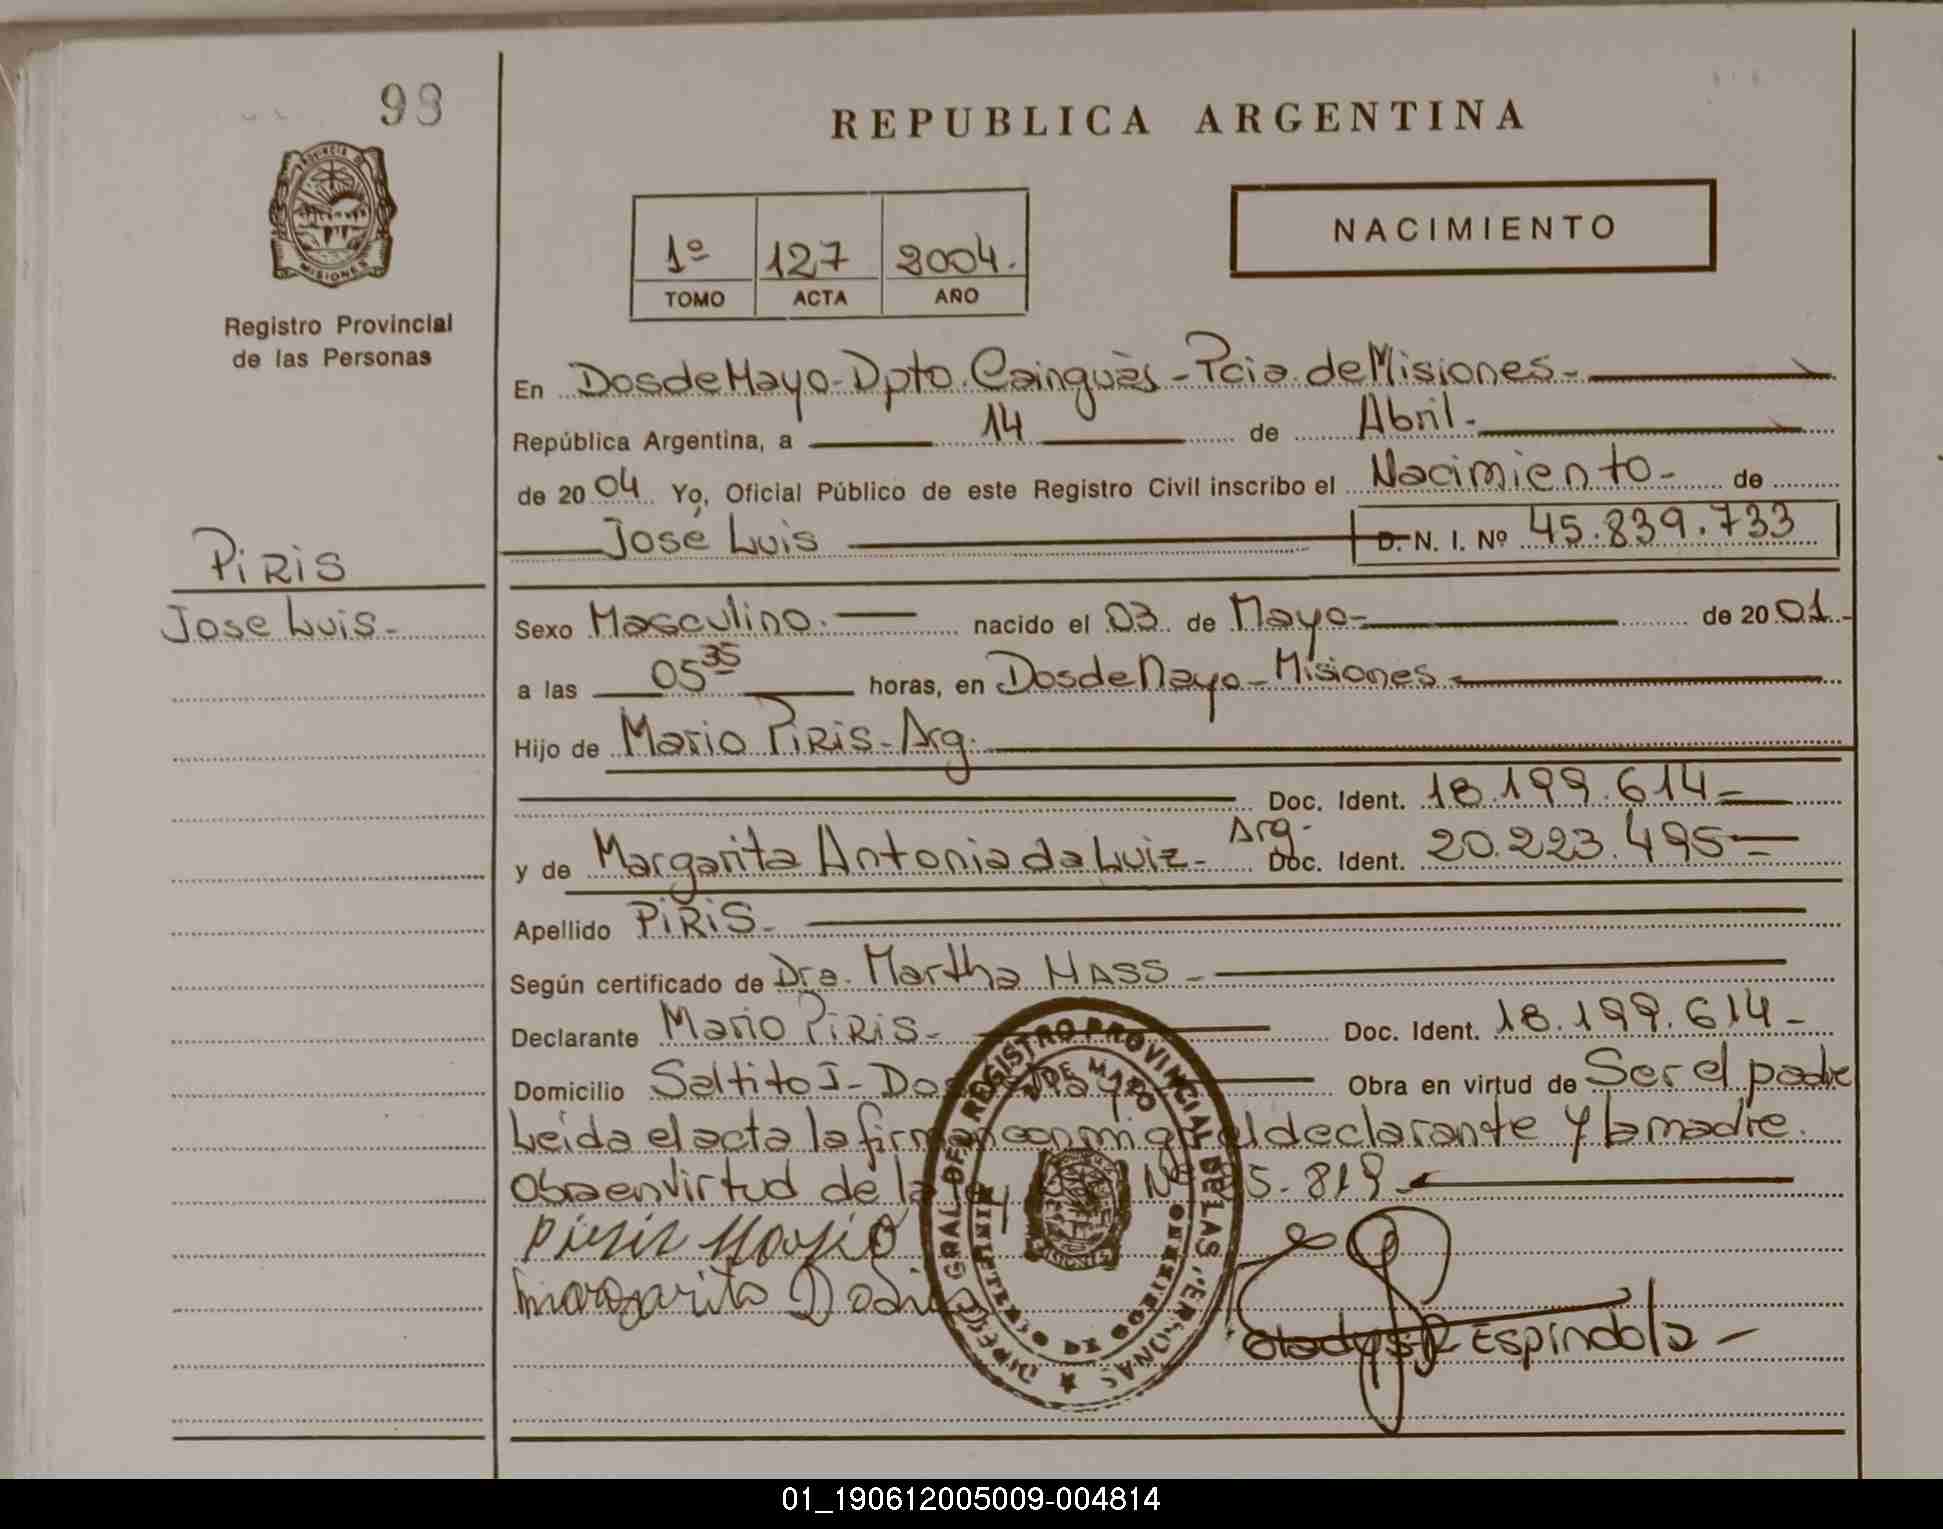 98
PROVINCIA DE
MISIONES
Registro Provincial
de las Personas
PIRIS
Jose Luis-
REPUBLICA ARGENTINA
1º 127 2004.
TOMO ACTA AÑO
NACIMIENTO
En Dos de Mayo- Dpto. Cainguàs - Pcia. de Misiones-
República Argentina, a 14 de Abril-
de 20 04 Yo, Oficial Público de este Registro Civil inscribo el Nacimiento- de
José Luis D. N. I. Nº 45.839.733
Sexo Masculino. nacido el 03 de Mayo- de 20 01.-
a las 05 35 horas, en Dos de Mayo- Misiones
Hijo de Mario PIRIS- Arg.
Doc. Ident. 18.199.614-
y de Margarita Antonia da Luiz- Arg- Doc. Ident. 20.223.495-
Apellido PIRIS-
Según certificado de Dra. Martha HASS-
Declarante Mario PIRIS- Doc. Ident. 18.199.614-
Domicilio Saltito I- Dos de Mayo Obra en virtud de Ser el padre
Leída el acta la firman conmigo el declarante y la madre.
Obra en virtud de la Ley Nº 25.819
Piris Mario
Margarita D
Gladys R Espíndola-
DIREC. GRAL. DEL REGISTRO PROVINCIAL DE LAS PERSONAS
2 DE MAYO
01_190612005009-004814